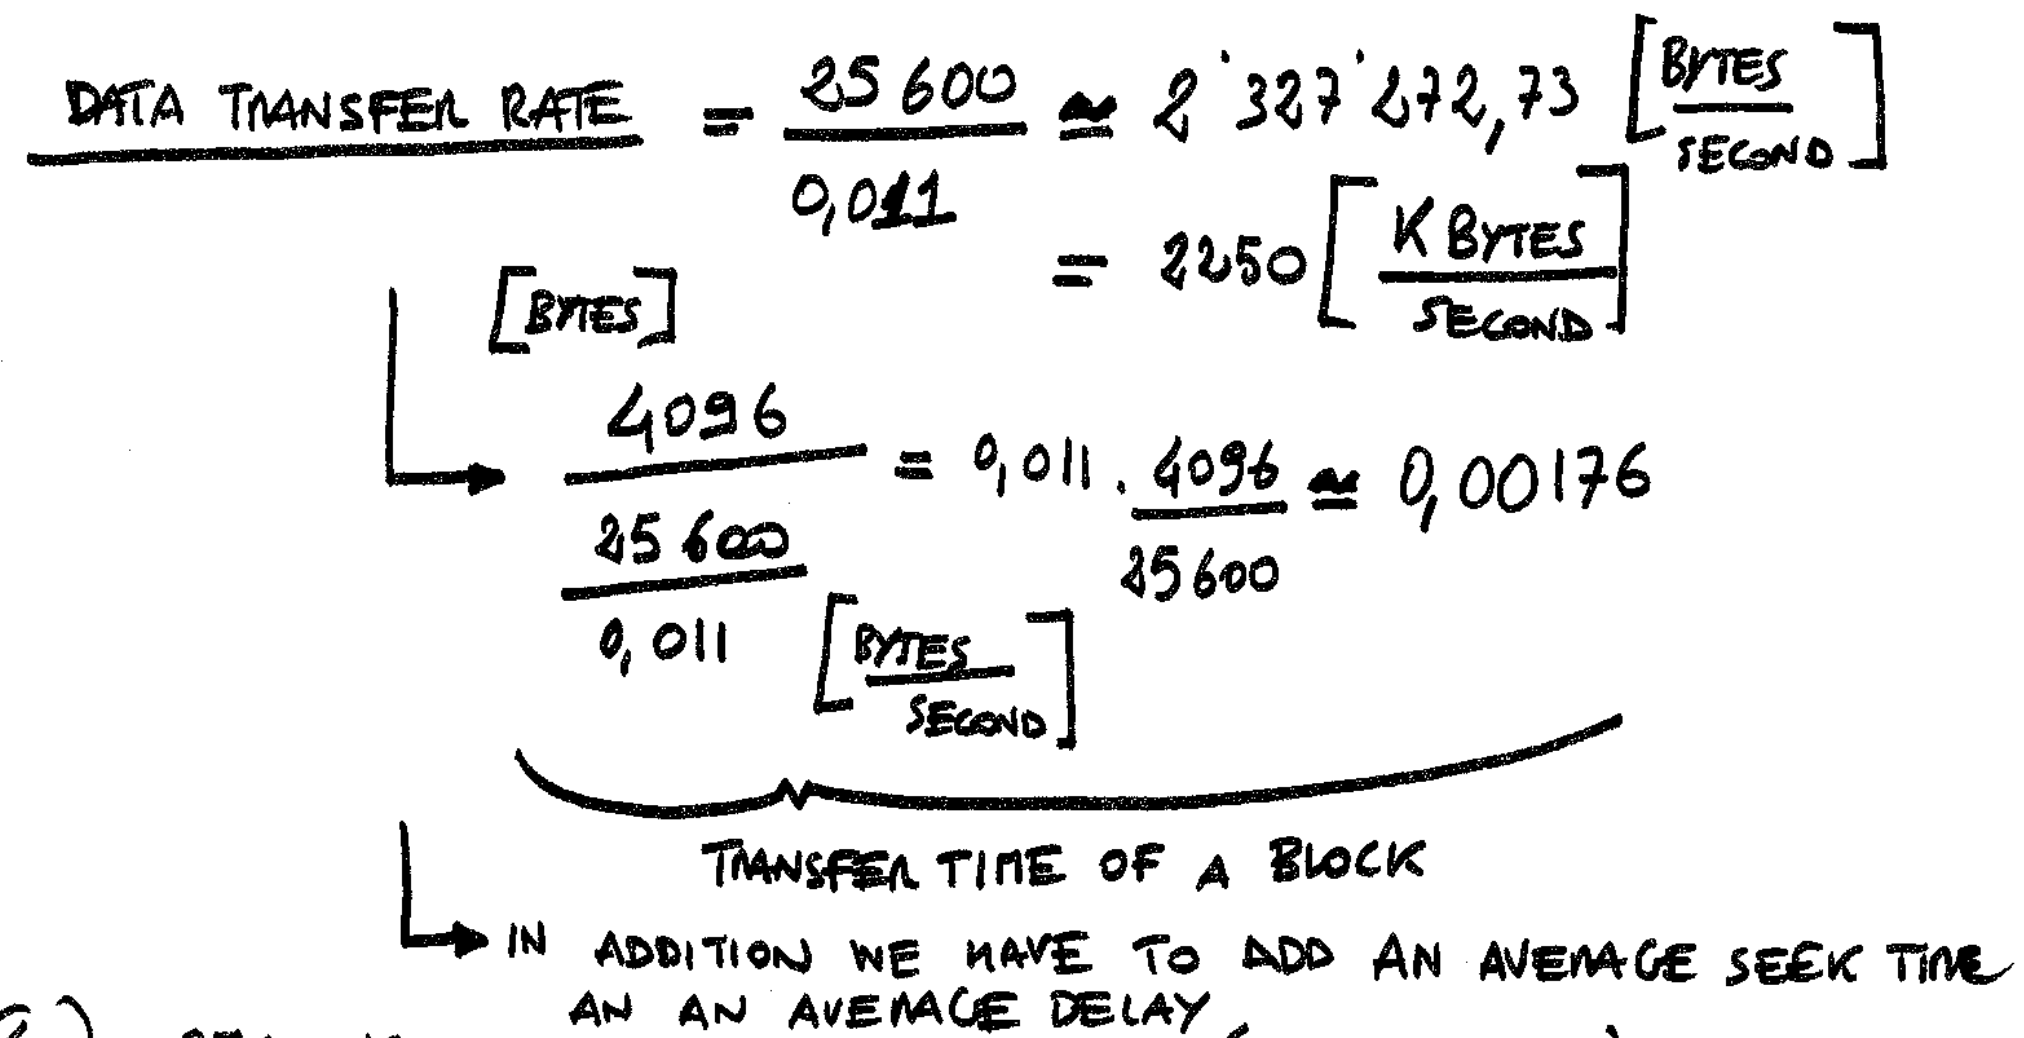 DATA TRANSFER RATE = 25 600 / 0,011 ≃ 2˙327˙272,73 [BYTES / SECOND]
= 2250 [K BYTES / SECOND]
[BYTES]
4096 / (25 600 / 0,011) = 0,011 . 4096 / 25600 ≃ 0,00176
[BYTES / SECOND]
TRANSFER TIME OF A BLOCK
IN ADDITION WE HAVE TO ADD AN AVERAGE SEEK TIME
AN AN AVERAGE DELAY